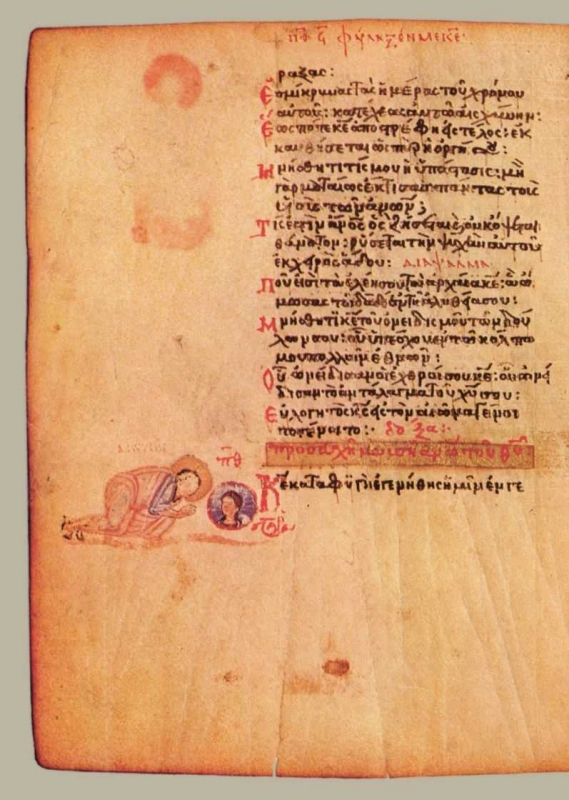 ραξας:
Ἐσμίκρυνας τὰς ἡμέρας τοῦ χρόνου
αὐτοῦ: κατέχεας αὐτῶ αἰσχύνην:
Ἕως πότε κε ἀποστρέφη εἰς τέλος: ἐκ
καυθήσεται ὡς πῦρ ἡ ὀργή σου:
Μνήσθητι τίς μου ἡ ὑπόστασις: μὴ
γὰρ ματαίως ἔκτισας πάντας τοὺς
υἱοὺς τῶν ανων;
Τίς ἐστιν ανος ὃς ζήσεται καὶ οὐκ ὄψεται
θάνατον: ῥύσεται τὴν ψυχὴν αὐτοῦ
ἐκ χειρὸς ἅδου: ΔΙΑΨΑΛΜΑ
Ποῦ εἰσι τὰ ἐλέη σου τὰ ἀρχαῖα κε: ἃ ὤ
μωσας τῶ δαδ ἐν τῆ ἀληθεία σου:
Μνήσθητι κε τοῦ ὀνειδισμοῦ τῶν δού
λων σου: οὗ ὑπέσχον ἐν τῶ κόλπω
μου πολλῶν ἐθνῶν:
Οὗ ὠνείδισαν οἱ ἐχθροί σου κε: οὗ ὠνεί
δισαν τὸ ἀντάλαγμα τοῦ χυ σου:
Εὐλογητὸς κς εἰς τὸν αἰῶνα γένοι
το γένοιτο: δόξα:
πθ προσευχὴ μωυσῆ ανου τοῦ θυ:
Κε καταφυγὴ ἐγενήθης ἡμῖν ἐν γε